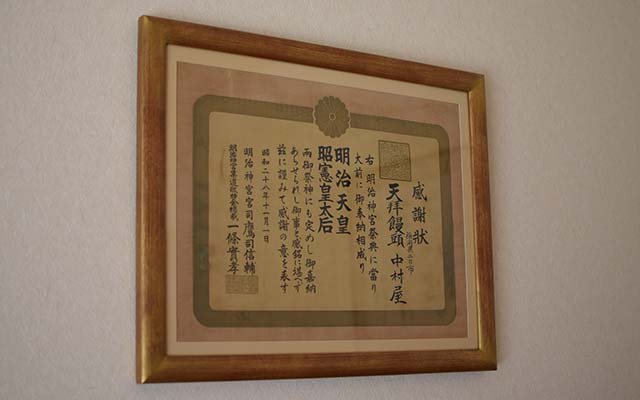 感謝状
天拜饅頭 中村屋
右 明治神宮祭典に當り
大前に御奉納相成り
明治天皇
昭憲皇太后
両御祭神にも定めし御嘉納
あらせられし御事と感銘に堪へず
茲に謹みて感謝の意を表す
昭和二十八年十一月一日
明治神宮宮司 鷹司信輔
一條實孝